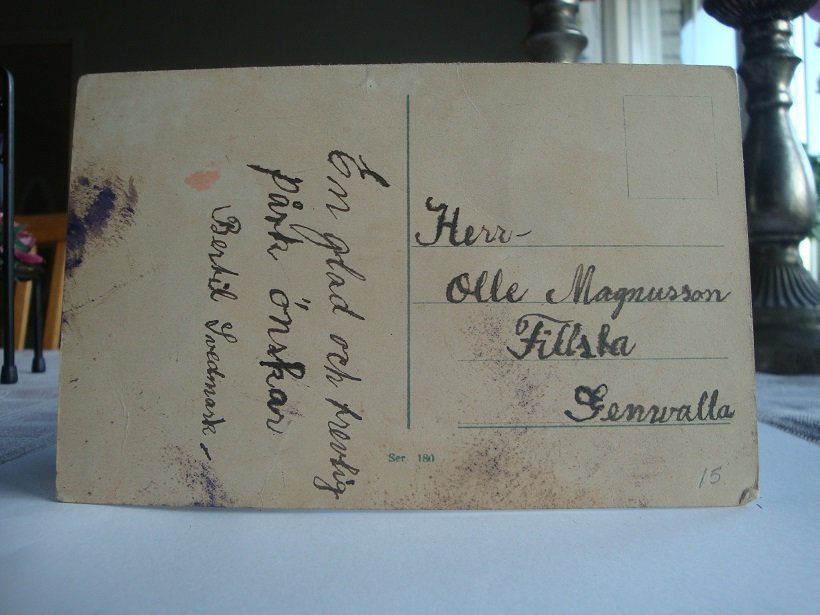 En glad och trevlig
påsk önskar
Bertil Svedmark
Herr
Olle Magnusson
Fillsta
Genvalla
Ser. 180
15